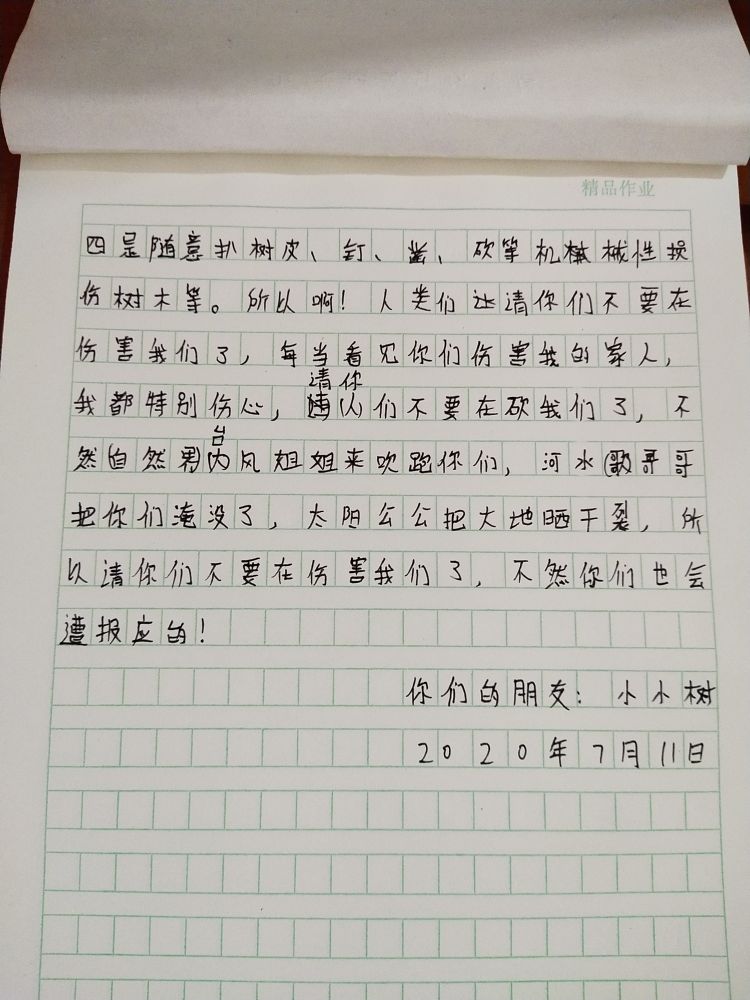 精品作业
四是随意扒树皮、钉、凿、砍等机械性损
伤树木等。所以啊！人类们让请你们不要在
伤害我们了，每当看见你们伤害我的家人，
请你
我都特别伤心，们不要在砍我们了，不
台
然自然界内风姐姐来吹跑你们，河水歌哥哥
把你们淹没了，太阳公公把大地晒干裂，所
以请你们不要在伤害我们了，不然你们也会
遭报应的！
你们的朋友：小小树
2020年7月11日